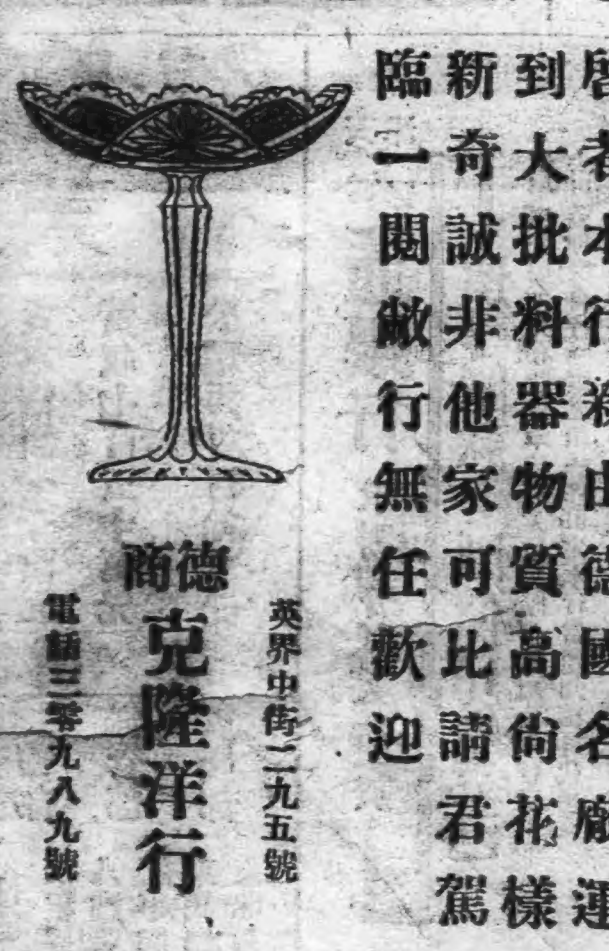 啓者本行新由德國名廠運
到大批料器物質高尚花樣
新奇誠非他家可比請君駕
臨一閱敝行無任歡迎
英界中街二九五號
德商
克隆洋行
電話三零九八九號